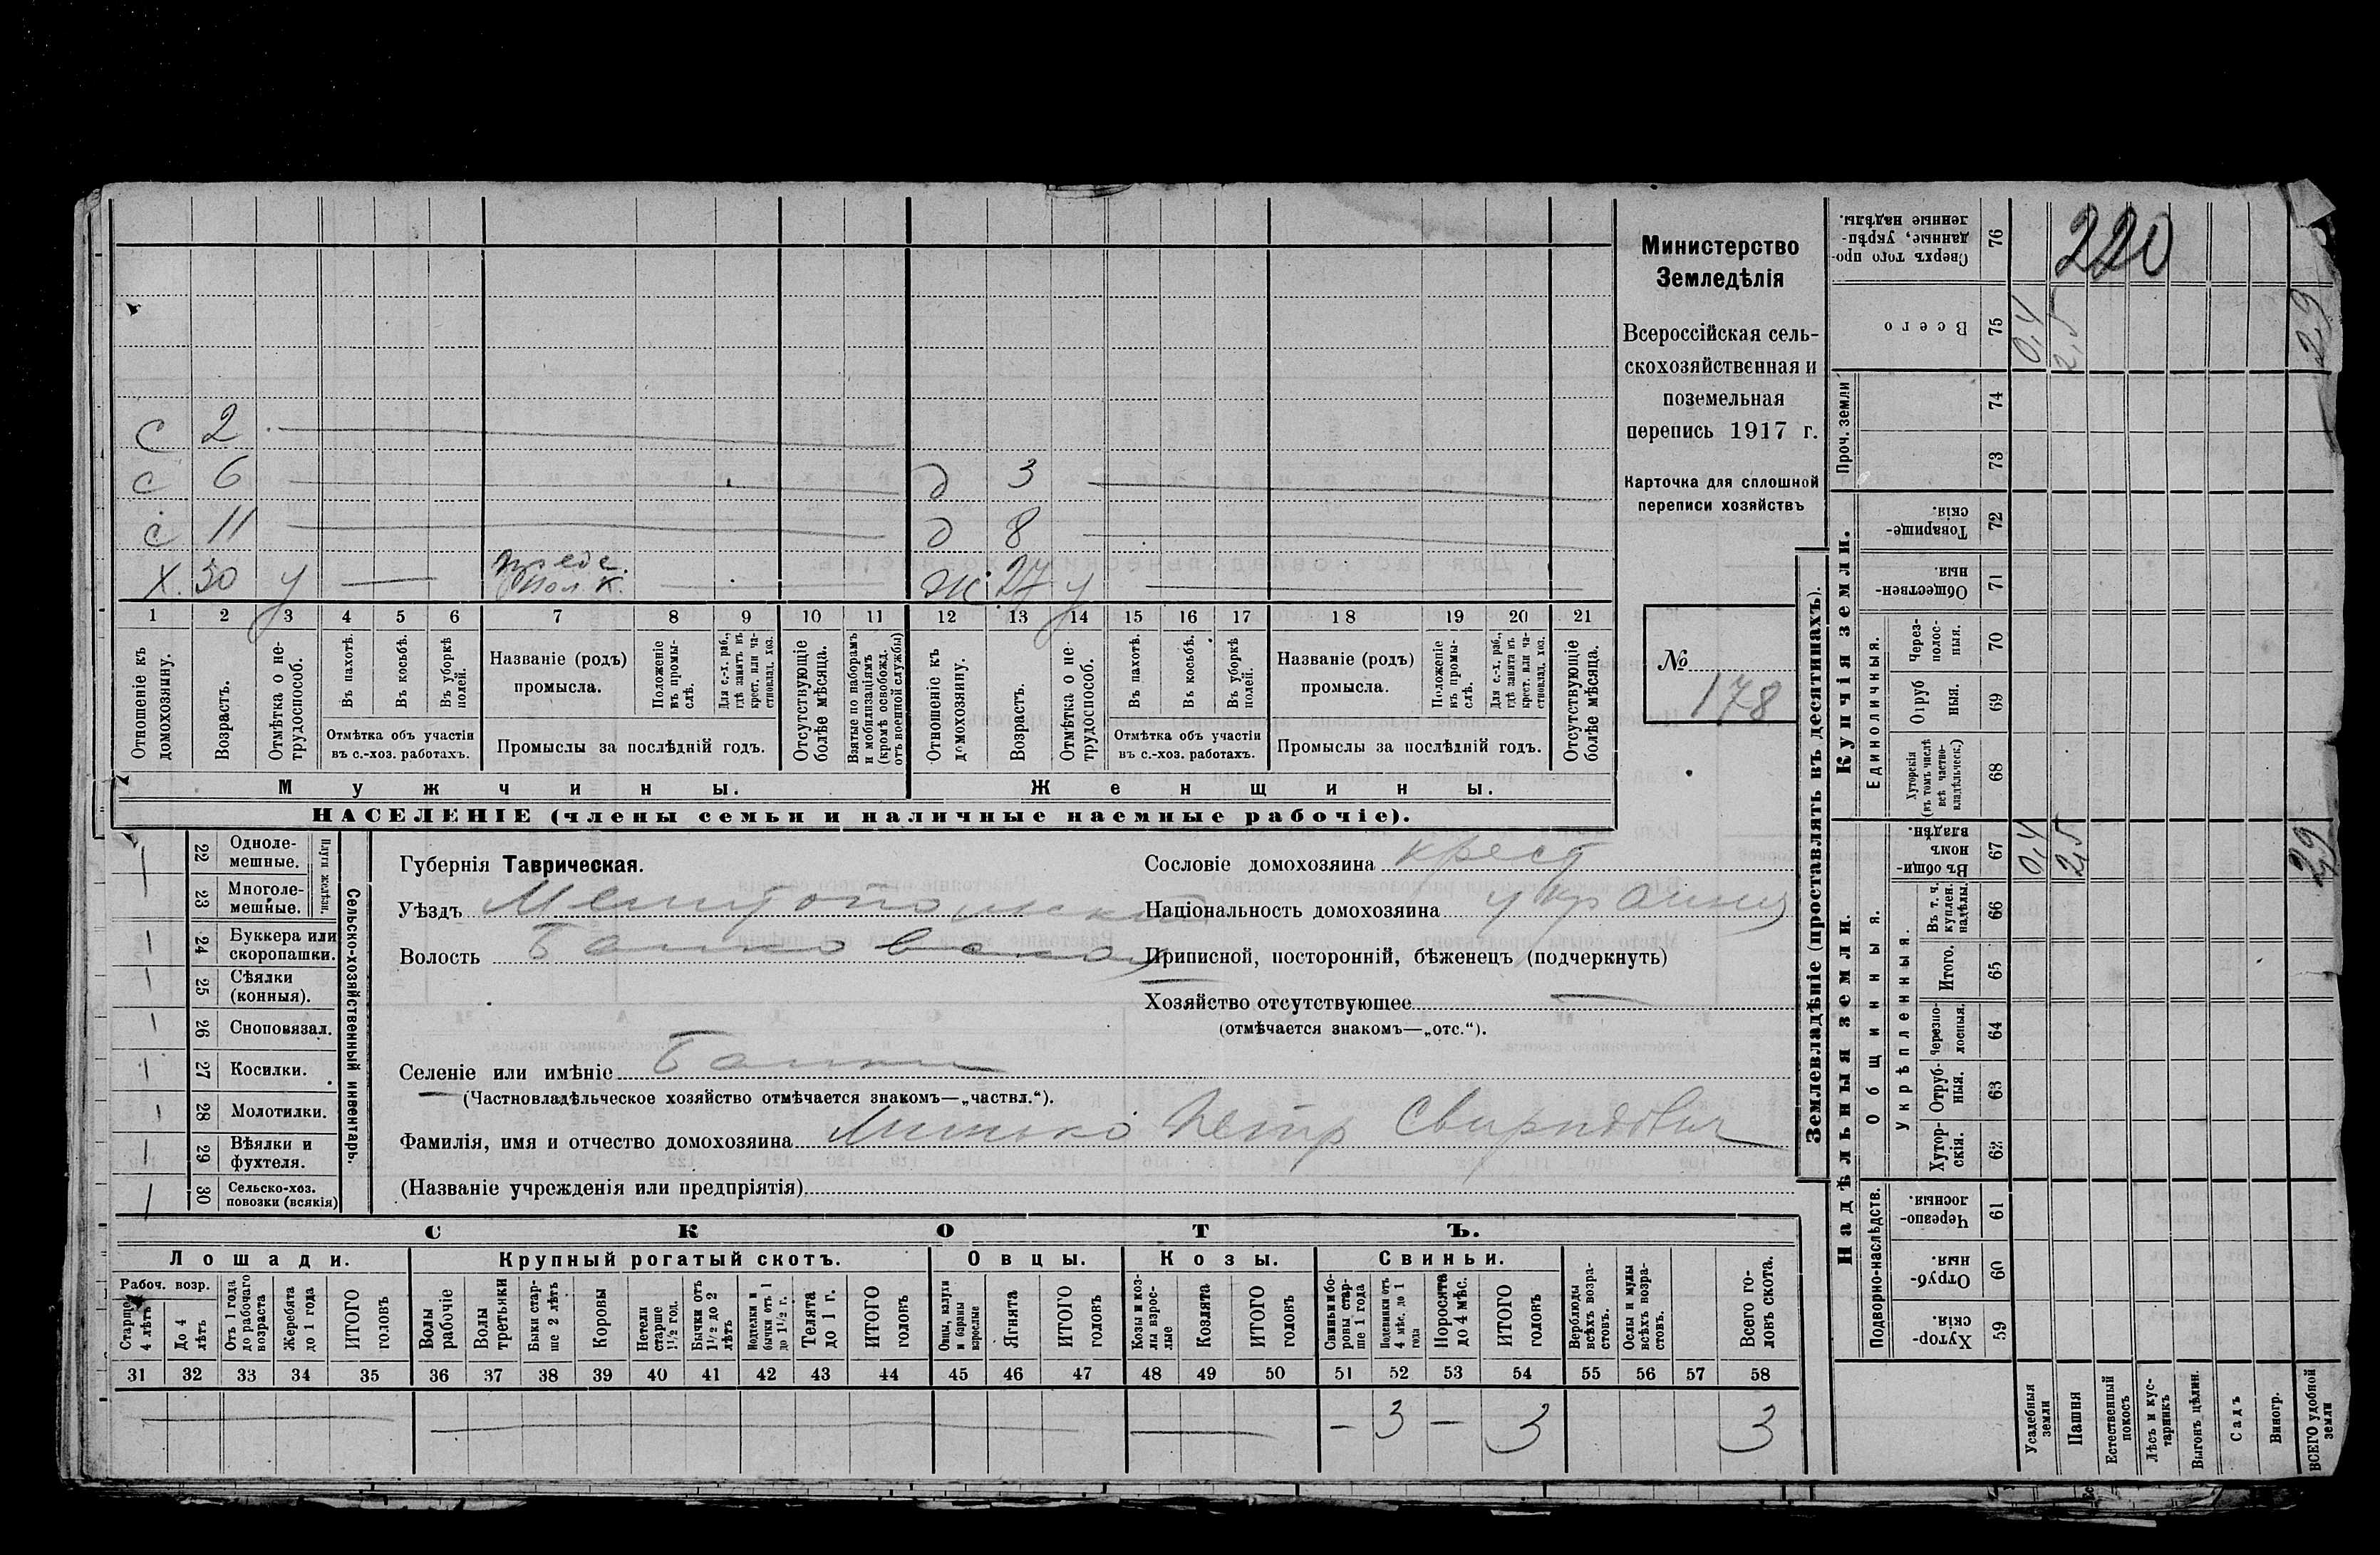 220
Министерство
Земледѣлія
Всероссійская сель-
скохозяйственная и
поземельная
перепись 1917 г.
Карточка для сплошной
переписи хозяйствъ
№
178
с 2
с 6 д 3
с 11 д 8
х. 30 у ж. 27 у
1 2 3 4 5 6 7 8 9 10 11 12 13 14 15 16 17 18 19 20 21
Отношеніе къ домохозяину.
Возрастъ.
Отмѣтка о не-трудоспособ.
Въ пахотѣ.
Въ косьбѣ.
Въ уборкѣ полей.
Отмѣтка объ участіи
въ с.-хоз. работахъ.
Названіе (родъ)
промысла.
Положеніе въ промы-слѣ.
Для с.-х. раб., гдѣ занятъ въ крест. или ча-стновлад. хоз.
Промыслы за послѣдній годъ.
Отсутствующіе болѣе мѣсяца.
Взятые по наборамъ и мобилизаціямъ (кромѣ освобожд. отъ военной службы)
Отношеніе къ домохозяину.
Возрастъ.
Отмѣтка о не-трудоспособ.
Въ пахотѣ.
Въ косьбѣ.
Въ уборкѣ полей.
Отмѣтка объ участіи
въ с.-хоз. работахъ.
Названіе (родъ)
промысла.
Положеніе въ промы-слѣ.
Для с.-х. раб., гдѣ занята въ крест. или ча-стновлад. хоз.
Промыслы за послѣдній годъ.
Отсутствующіе болѣе мѣсяца.
Мужчины.
Женщины.
НАСЕЛЕНІЕ (члены семьи и наличные наемные рабочіе).
Сельско-хозяйственный инвентарь.
Плуги желѣзн.
22 Одноле-мешные.
23 Многоле-мешные.
24 Буккера или скоропашки.
25 Сѣялки (конныя).
26 Сноповязал.
27 Косилки.
28 Молотилки.
29 Вѣялки и фухтеля.
30 Сельско-хоз. повозки (всякія)
Губернія Таврическая.
Уѣздъ Мелитопольский
Волость
Селеніе или имѣніе
(Частновладѣльческое хозяйство отмѣчается знакомъ—„частвл.“).
Фамилія, имя и отчество домохозяина Петр Свиридович
(Названіе учрежденія или предпріятія)
Сословіе домохозяина крест
Національность домохозяина
Приписной, посторонній, бѣженецъ (подчеркнуть)
Хозяйство отсутствующее
(отмѣчается знакомъ—„отс.“).
СКОТЪ.
Лошади.
Крупный рогатый скотъ.
Овцы.
Козы.
Свиньи.
Рабоч. возр.
Старше 4 лѣтъ
До 4 лѣтъ
Отъ 1 года до рабочаго возраста
Жеребята до 1 года
ИТОГО головъ
Волы рабочіе
Волы третьяки
Быки стар-ше 2 лѣтъ
Коровы
Нетели старше 1½ год.
Бычки отъ 1½ до 2 лѣтъ
Подтелки и бычки отъ 1 до 1½ г.
Телята до 1 г.
ИТОГО головъ
Овцы, валухи и бараны взрослые
Ягнята
ИТОГО головъ
Козы и коз-лы взрос-лые
Козлята
ИТОГО головъ
Свиньи и бо-ровы стар-ше 1 года
Подсвинки отъ 4 мѣс. до 1 года
Поросята до 4 мѣс.
ИТОГО головъ
Верблюды всѣхъ возра-стовъ.
Ослы и мулы всѣхъ возра-стовъ.
Всего го-ловъ скота.
31 32 33 34 35 36 37 38 39 40 41 42 43 44 45 46 47 48 49 50 51 52 53 54 55 56 57 58
— 3 — 3 3
Землевладѣніе (проставлять въ десятинахъ).
Надѣльныя земли.
Купчія земли.
Проч. земли
Подворно-наслѣдств.
Общинныя.
Укрѣпленныя.
Единоличныя.
76 Сверхъ того про-данные, укрѣп-ленные надѣлы.
75 Всего
74
73
72 Товарище-скія.
71 Обществен-ныя.
70 Через-полос-ныя.
69 Отруб ныя.
68 Хуторскія (въ томъ числѣ всѣ частно-владѣльческ.)
67 Въ общи-номъ владѣн.
66 Въ т. ч. куплен. надѣлы.
65 Итого.
64 Черезпо-лосныя.
63 Отруб-ныя.
62 Хутор-скія.
61 Черезпо-лосныя.
60 Отруб-ныя.
59 Хутор-скія.
Усадебныя земли
Пашня
Естественный покосъ
Лѣсъ и кус-тарникъ
Выгонъ цѣлин.
Садъ
Виногр.
ВСЕГО удобной земли
0,4 2,5 2,9
0,4 2,5 2,9